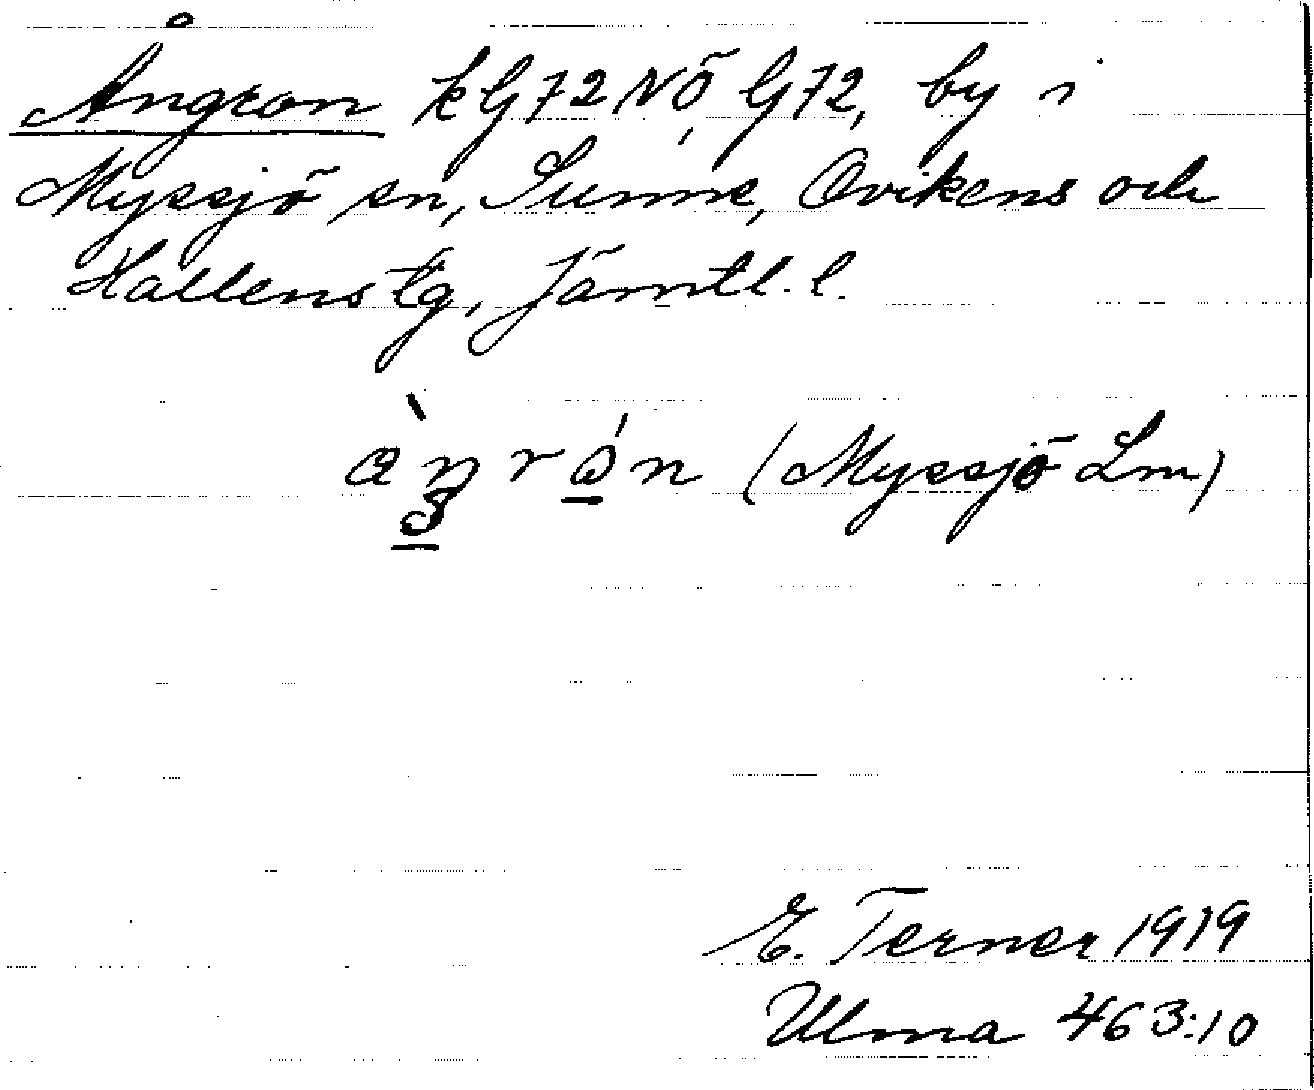 Ångron kG72NÖ, G72, by i
Myssjö sn, Sunne, Ovikens och
Hallens tg, Jämtl. l.
(Myssjö Lm)
E. Terner 1919
Ulma 463:10